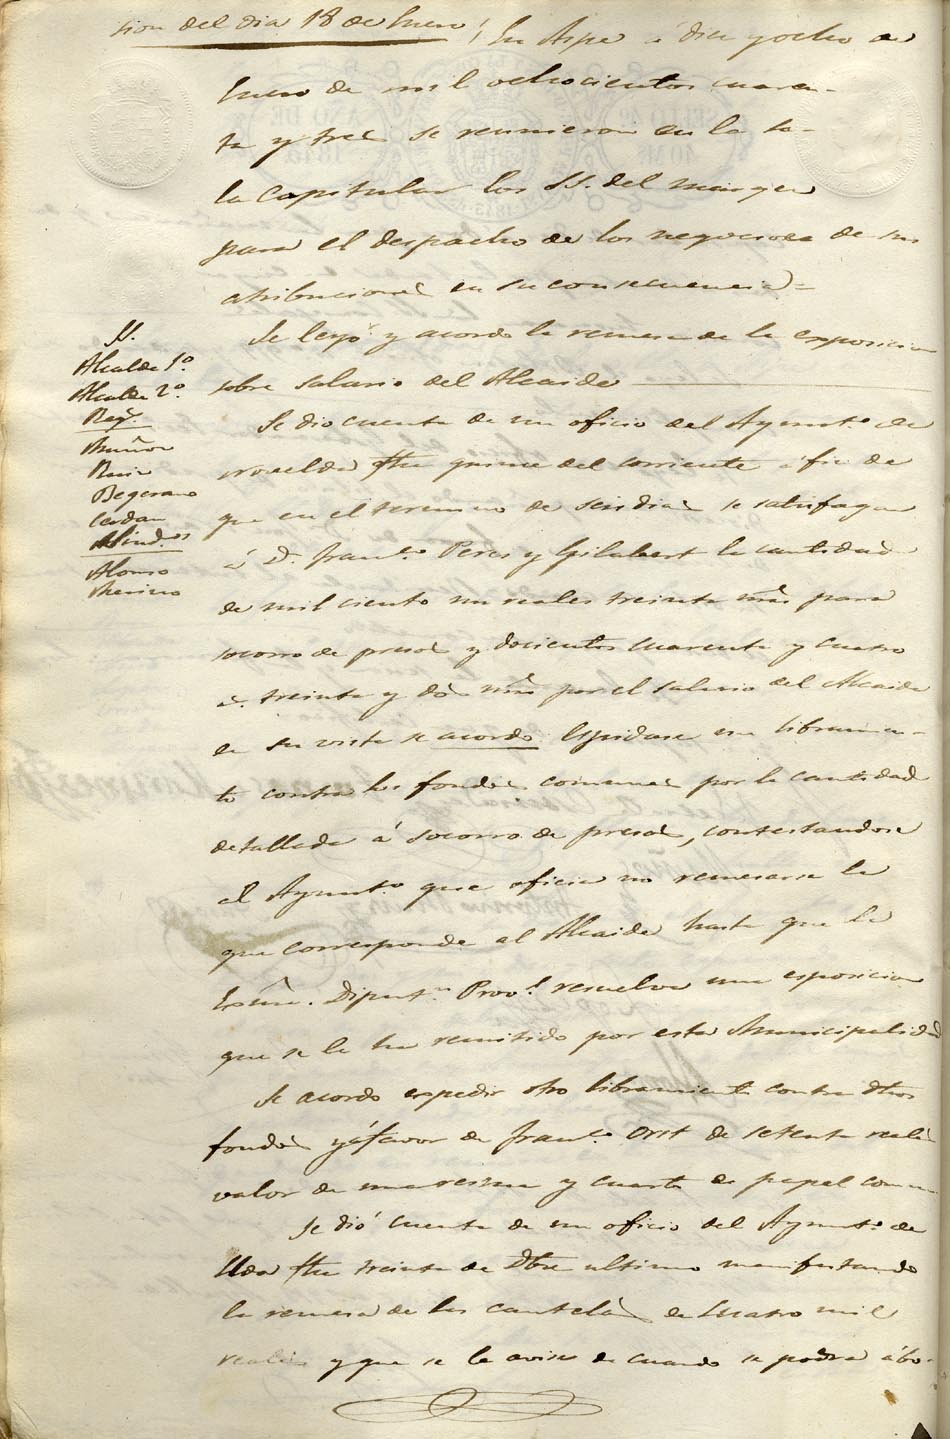 sion del dia 18 de Enero / En Aspe á diez y ocho de
Enero de mil ochocientos cuaren-
ta y tres se reunieron en la sa-
la Capitular los SS. del margen
para el despacho de los negocios de sus
atribuciones en su consecuencia =
Se leyó y acordo la remesa de la exposicion
sobre salario del Alcaide
SS.
Alcalde 1º
Alcalde 2º
Reg.s
Muñoz
Ruiz
Begerano
Cerdan
Sind.os
Alonso
Merino
Se dio cuenta de un oficio del Ayunt.o de
Novelda fha quince del corriente á fin de
que en el termino de seis dias se satisfagan
á D. Fran.co Peres y Gilabert la cantidad
de mil ciento un reales treinta mrs para
socorro de presos y docientos cuarenta y cuatro
r. treinta y dos mrs por el salario del Alcaide
en su vista se acordo Espidase un libramien-
to contra los fondos comunes por la cantidad
detallada á socorro de presos, contestandose
al Ayunt.o que oficia no remesarse la
que corresponde al Alcaide hasta que la
Exma. Diput.n Prov.l resuelva una esposicion
que se le ha remitido por esta Municipalidad
Se acordo espedir otro libramiento contra dhos
fondos y á favor de Fran.co Orts de setenta reales
valor de una resma y cuarta de papel comun
Se dió cuenta de un oficio del Ayunt.o de
Elda fha treinta de Dbre ultimo manifestando
la remesa de las cautelas de cuatro mil
reales y que se le avise de cuando se podra abo-